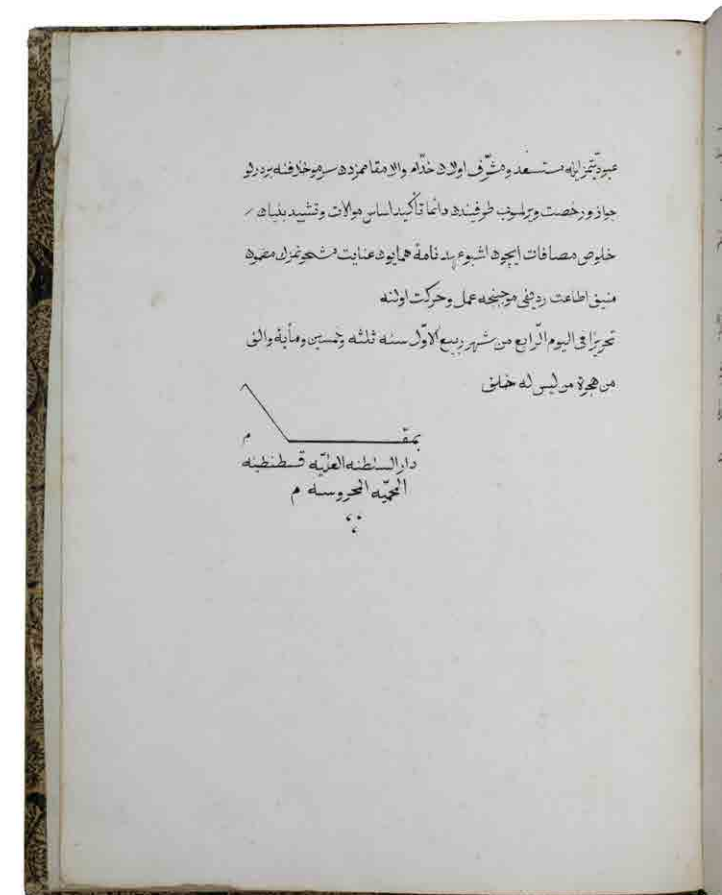 عبوديّتمز ايله مستسعد ومشرّف اولان خدّام والا مقاممزدن سرمو خلافنه بر درلو
جواز ورخصت ويرلميوب طرفينده دائما تأكيد اساس موالات وتشييد بنيان
خلوص مصافات ايچون اشبو عهدنامهٔ همايون عنايت مشحونمزك مضمون
منيف اطاعت رديفى موجبنجه عمل وحركت اولنه
تحريرًا فى اليوم الرّابع من شهر ربيع الاوّل سنه ثلثه وخمسين ومأية والف
من هجرة من ليس له خلف
بمقـــــام م
دار السلطنه العليّه قسطنطينه
المحميّه المحروسه م